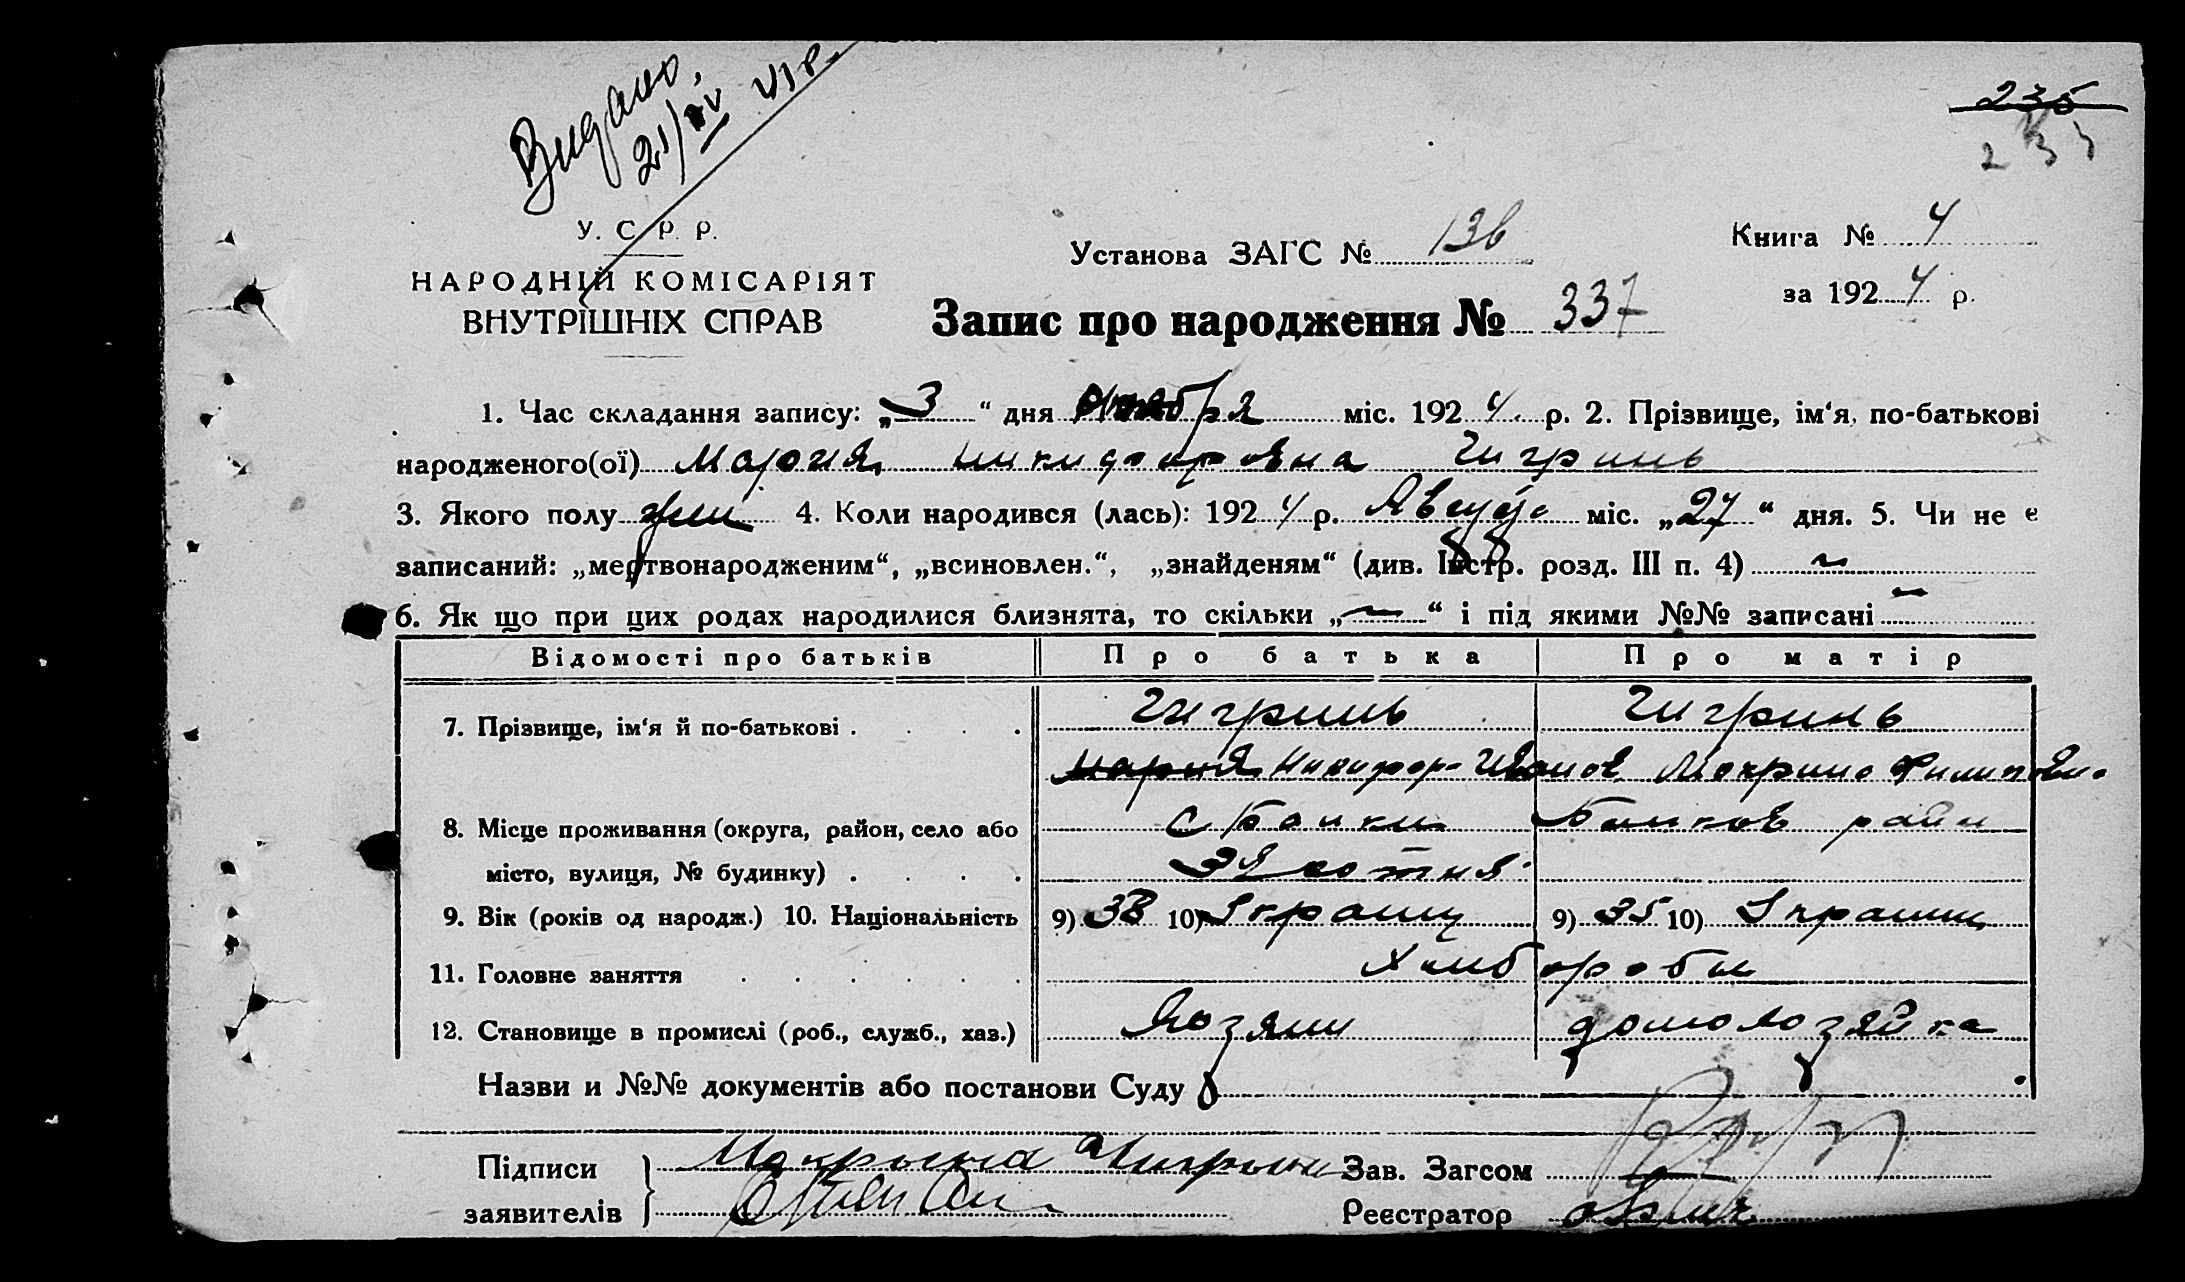 Видано,
21/IV
235
У. С. Р. Р.
НАРОДНІЙ КОМІСАРІЯТ
ВНУТРІШНІХ СПРАВ
Установа ЗАГС № 136
Книга № 4
за 1924 р.
Запис про народження № 337
1. Час складання запису: „3“ дня Октября міс. 1924 р. 2. Прізвище, ім‘я, по-батькові
народженого(ої) Мария Никифоровна Чигринь
3. Якого полу жен 4. Коли народився (лась): 1924 р. Августа міс. „27“ дня. 5. Чи не є
записаний: „мертвонародженим“, „всиновлен.“, „знайденям“ (див. Інстр. розд. III п. 4) ~
6. Як що при цих родах народилися близнята, то скільки „~“ і під якими №№ записані ~
Відомості про батьків Про батька Про матір
7. Прізвище, ім‘я й по-батькові . Чигринь Чигринь
Мария Никифор Иванов Мокрина Филиповн.
8. Місце проживання (округа, район, село або с Банки Банков район
місто, вулиця, № будинку) . сотня
9. Вік (років од народж.) 10. Національність 9) 38 10) Украинц 9) 35 10) Украинц
11. Головне заняття Хлеборобы
12. Становище в промислі (роб., служб., хаз.) Хозяин домохозяйка
Назви и №№ документів або постанови Суду
Підписи
заявителів
Мокрына Чигрын
Зав. Загсом
Реєстратор